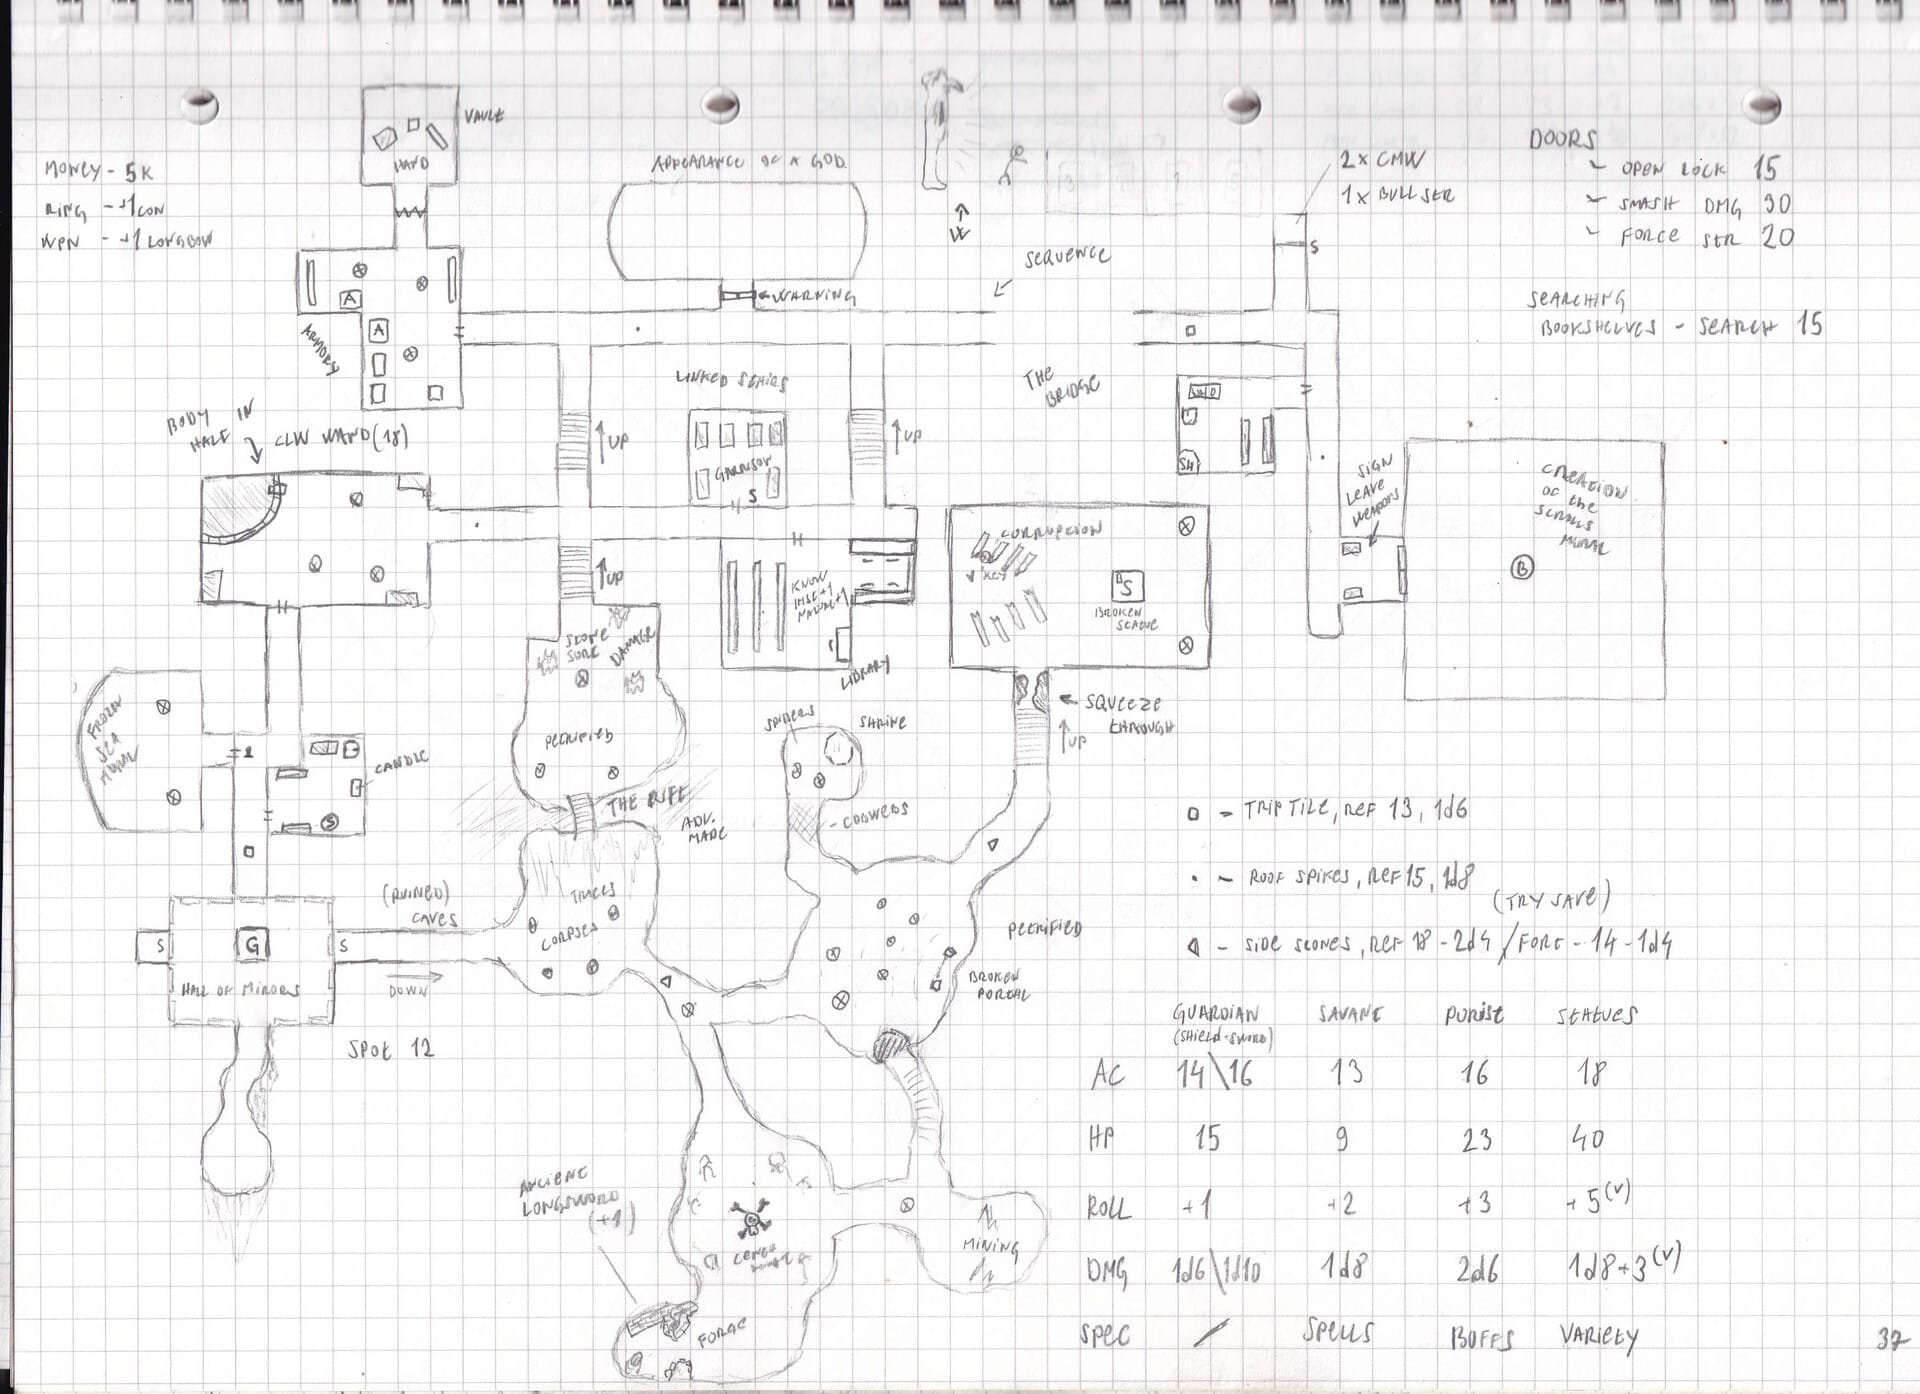 VAULT
HAND
MONEY - 5K
RING - +1 CON
WPN - +1 LONGBOW
APPEARANCE OF A GOD
WARNING
SEQUENCE
2x CMW
1x BULL STR
S
DOORS
- OPEN LOCK 15
- SMASH DMG 30
- FORCE STR 20
SEARCHING
BOOKSHELVES - SEARCH 15
A
A
ARMORY
BODY
HALF IN
CLW WAND (18)
LINKED STAIRS
UP
UP
GARRISON
S
THE
BRIDGE
SH
SIGN
LEAVE
WEAPONS
CREATION
OF THE
SCROLLS
MURAL
B
UP
STONE
SURE
DAMAGE
PETRIFIED
KNOW
LIBRARY
CORRUPTION
KEY
S
BROKEN
STATUE
SQUEEZE
THROUGH
UP
FROZEN
SEA
MURAL
1
CANDLE
S
THE RIFT
ADV.
MADE
SPIDERS
SHRINE
- COBWEBS
TRACES
CORPSES
(RUINED)
CAVES
DOWN
S
G
S
HALL OF MIRRORS
SPOT 12
PETRIFIED
BROKEN
PORTAL
ANCIENT
LONGSWORD
(+1)
FORGE
MINING
- TRIP TILE, REF 13, 1d6
- ROOF SPIKES, REF 15, 1d8
(TRY SAVE)
- SIDE STONES, REF 18 - 2d4 / FORT - 14 - 1d4
GUARDIAN SAVANT PURIST STATUES
(SHIELD-SWORD)
AC 14\16 13 16 18
HP 15 9 23 40
ROLL +1 +2 +3 +5 (V)
DMG 1d6\1d10 1d8 2d6 1d8+3 (V)
SPEC / SPELLS BUFFS VARIETY
37